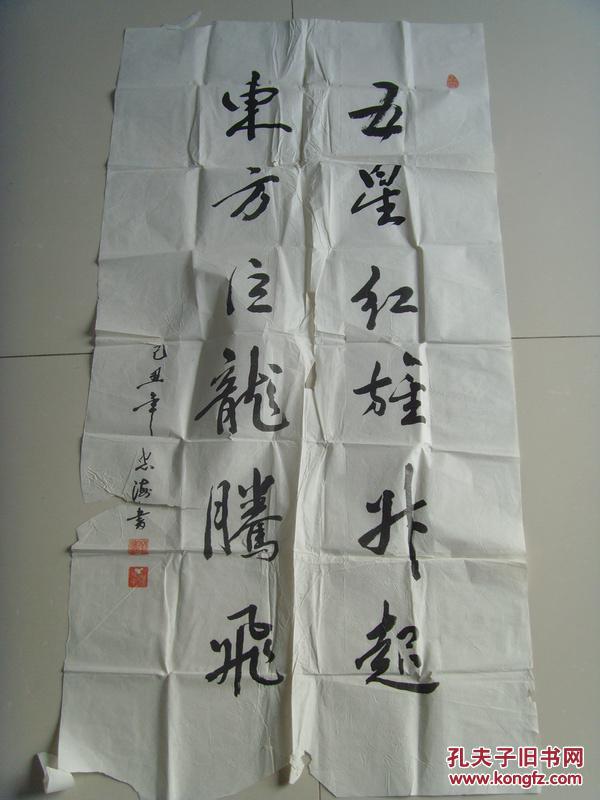 五星红旗升起
東方巨龍騰飛
己丑年 忠海書
孔夫子旧书网
www.kongfz.com